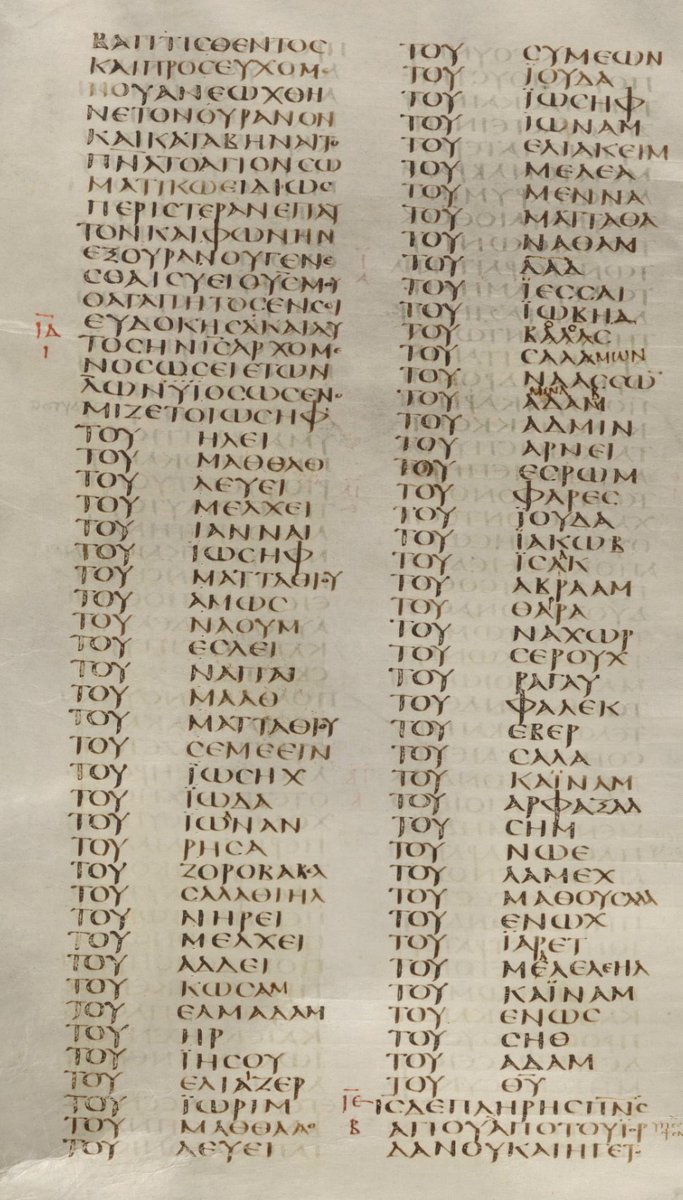 ΒΑΠΤΙϹΘΕΝΤΟϹ
ΚΑΙΠΡΟϹΕΥΧΟΜΕ
ΝΟΥΑΝΕΩΧΘΗ
ΝΕΤΟΝΟΥΡΑΝΟΝ
ΚΑΙΚΑΤΑΒΗΝΑΙΤΟ
ΠΝΑΤΟΑΓΙΟΝϹΩ
ΜΑΤΙΚΩΕΙΔΙΩϹ
ΠΕΡΙϹΤΕΡΑΝΕΠΑΥ
ΤΟΝΚΑΙΦΩΝΗΝ
ΕΞΟΥΡΑΝΟΥΓΕΝΕ
ϹΘΑΙϹΥΕΙΟΥϹΜΟΥ
ΟΑΓΑΠΗΤΟϹΕΝϹΟΙ
ΙΔ ΕΥΔΟΚΗϹΑΚΑΙΑΥ
Ι ΤΟϹΗΝΙϹΑΡΧΟΜΕ
ΝΟϹΩϹΕΙΕΤΩΝ
ΛΩΝΥΙΟϹΩϹΕΝΟ
ΜΙΖΕΤΟΙΩϹΗΦ
ΤΟΥ ΗΛΕΙ
ΤΟΥ ΜΑΘΘΑΘ
ΤΟΥ ΛΕΥΕΙ
ΤΟΥ ΜΕΛΧΕΙ
ΤΟΥ ΙΑΝΝΑΙ
ΤΟΥ ΙΩϹΗΦ
ΤΟΥ ΜΑΤΤΑΘΙΟΥ
ΤΟΥ ΑΜΩϹ
ΤΟΥ ΝΑΟΥΜ
ΤΟΥ ΕϹΛΕΙ
ΤΟΥ ΝΑΓΓΑΙ
ΤΟΥ ΜΑΑΘ
ΤΟΥ ΜΑΤΤΑΘΙΟΥ
ΤΟΥ ϹΕΜΕΕΙΝ
ΤΟΥ ΪΩϹΗΧ
ΤΟΥ ΪΩΔΑ
ΤΟΥ ΪΩΑΝΑΝ
ΤΟΥ ΡΗϹΑ
ΤΟΥ ΖΟΡΟΒΑΒΕΛ
ΤΟΥ ϹΑΛΑΘΙΗΛ
ΤΟΥ ΝΗΡΕΙ
ΤΟΥ ΜΕΛΧΕΙ
ΤΟΥ ΑΔΔΕΙ
ΤΟΥ ΚΩϹΑΜ
ΤΟΥ ΕΛΜΑΔΑΜ
ΤΟΥ ΗΡ
ΤΟΥ ΪΗϹΟΥ
ΤΟΥ ΕΛΙΑΖΕΡ
ΤΟΥ ΪΩΡΙΜ
ΤΟΥ ΜΑΘΘΑΑΘ
ΤΟΥ ΛΕΥΕΙ
ΤΟΥ ϹΥΜΕΩΝ
ΤΟΥ ΪΟΥΔΑ
ΤΟΥ ΪΩϹΗΦ
ΤΟΥ ΪΩΝΑΜ
ΤΟΥ ΕΛΙΑΚΕΙΜ
ΤΟΥ ΜΕΛΕΑ
ΤΟΥ ΜΕΝΝΑ
ΤΟΥ ΜΑΤΤΑΘΑ
ΤΟΥ ΝΑΘΑΜ
ΤΟΥ ΔΑΔ
ΤΟΥ ΪΕϹϹΑΙ
ΤΟΥ ΪΩΒΗΔ
ΤΟΥ ΒΑΛΛϹ
ΤΟΥ ϹΑΛΑΜΩΝ
ΤΟΥ ΝΑΑϹϹΩ
ΤΟΥ ΑΔΑΜ
ΤΟΥ ΑΔΜΙΝ
ΤΟΥ ΑΡΝΕΙ
ΤΟΥ ΕϹΡΩΜ
ΤΟΥ ΦΑΡΕϹ
ΤΟΥ ΪΟΥΔΑ
ΤΟΥ ΪΑΚΩΒ
ΤΟΥ ΪϹΑΚ
ΤΟΥ ΑΒΡΑΑΜ
ΤΟΥ ΘΑΡΑ
ΤΟΥ ΝΑΧΩΡ
ΤΟΥ ϹΕΡΟΥΧ
ΤΟΥ ΡΑΓΑΥ
ΤΟΥ ΦΑΛΕΚ
ΤΟΥ ΕΒΕΡ
ΤΟΥ ϹΑΛΑ
ΤΟΥ ΚΑΪΝΑΜ
ΤΟΥ ΑΡΦΑΞΑΔ
ΤΟΥ ϹΗΜ
ΤΟΥ ΝΩΕ
ΤΟΥ ΛΑΜΕΧ
ΤΟΥ ΜΑΘΟΥϹΑΛΑ
ΤΟΥ ΕΝΩΧ
ΤΟΥ ΪΑΡΕΤ
ΤΟΥ ΜΕΛΕΛΕΗΛ
ΤΟΥ ΚΑΪΝΑΜ
ΤΟΥ ΕΝΩϹ
ΤΟΥ ϹΗΘ
ΤΟΥ ΑΔΑΜ
ΤΟΥ ΘΥ
ΙΕ ΙϹΔΕΠΛΗΡΗϹΠΝϹ
Β ΑΓΙΟΥΑΠΟΤΟΥΙΟΡ
ΔΑΝΟΥΚΑΙΗΓΕΤ